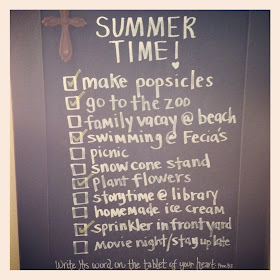 SUMMER
TIME!
make popsicles
go to the zoo
family vacay @ beach
swimming @ Fecia's
picnic
snow cone stand
plant flowers
storytime @ library
homemade ice cream
sprinkler in front yard
movie night/stay up late
Write His word on the tablet of your heart.